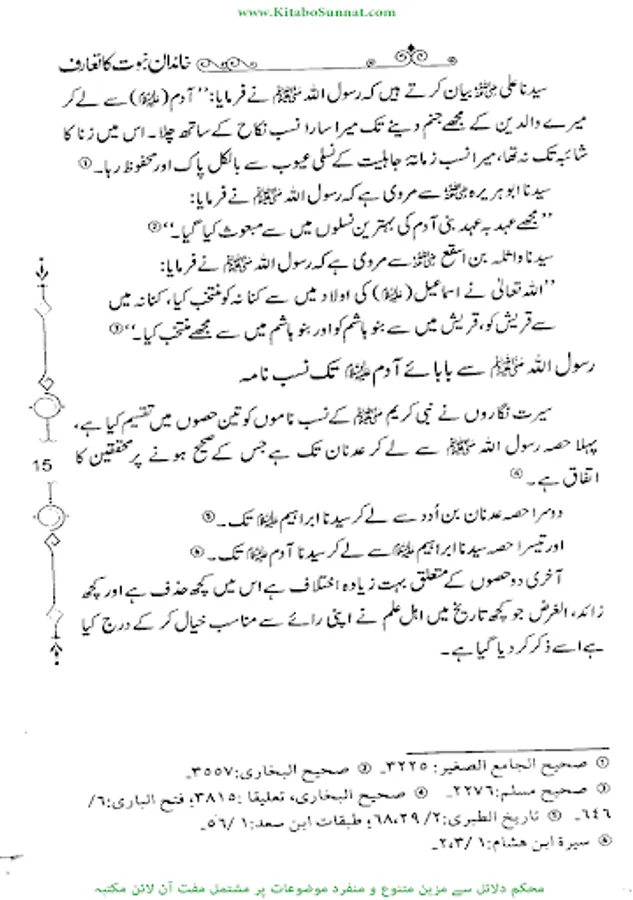 www.KitaboSunnat.com
خاندان نبوت کا تعارف
سیدنا علی رضی اللہ عنہ بیان کرتے ہیں کہ رسول اللہ ﷺ نے فرمایا: ’’آدم (علیہ السلام) سے لے کر
میرے والدین کے مجھے جنم دینے تک میرا سارا نسب نکاح کے ساتھ چلا۔ اس میں زنا کا
شائبہ تک نہ تھا، میرا نسب زمانۂ جاہلیت کے نسلی عیوب سے بالکل پاک اور محفوظ رہا۔ ①
سیدنا ابو ہریرہ رضی اللہ عنہ سے مروی ہے کہ رسول اللہ ﷺ نے فرمایا:
’’مجھے عہد بہ عہد بنی آدم کی بہترین نسلوں میں سے مبعوث کیا گیا۔‘‘ ②
سیدنا واثلہ بن اسقع رضی اللہ عنہ سے مروی ہے کہ رسول اللہ ﷺ نے فرمایا:
’’اللہ تعالیٰ نے اسماعیل (علیہ السلام) کی اولاد میں سے کنانہ کو منتخب کیا، کنانہ میں
سے قریش کو، قریش میں سے بنو ہاشم کو اور بنو ہاشم میں سے مجھے منتخب کیا۔‘‘ ③
رسول اللہ ﷺ سے بابائے آدم علیہ السلام تک نسب نامہ
سیرت نگاروں نے نبی کریم ﷺ کے نسب ناموں کو تین حصوں میں تقسیم کیا ہے،
پہلا حصہ رسول اللہ ﷺ سے لے کر عدنان تک ہے جس کے صحیح ہونے پر محققین کا
اتفاق ہے۔ ④
دوسرا حصہ عدنان بن اُدد سے لے کر سیدنا ابراہیم علیہ السلام تک۔ ⑤
اور تیسرا حصہ سیدنا ابراہیم علیہ السلام سے لے کر سیدنا آدم علیہ السلام تک۔ ⑥
آخری دو حصوں کے متعلق بہت زیادہ اختلاف ہے اس میں کچھ حذف ہے اور کچھ
زائد، الغرض جو کچھ تاریخ میں اہل علم نے اپنی رائے سے مناسب خیال کر کے درج کیا
ہے اسے ذکر کر دیا گیا ہے۔
15
① صحیح الجامع الصغیر: ۳۲۲۵۔ ② صحیح البخاری: ۳۵۵۷۔
③ صحیح مسلم: ۲۲۷۶۔ ④ صحیح البخاری، تعلیقا: ۳۸۱۵؛ فتح الباری: ۶/
۶۴۶۔ ⑤ تاریخ الطبری: ۲/ ۲۹، ۶۸؛ طبقات ابن سعد: ۱/ ۵۶۔
⑥ سیرۃ ابن ھشام: ۱/ ۲،۳۔
محکم دلائل سے مزین متنوع و منفرد موضوعات پر مشتمل مفت آن لائن مکتبہ